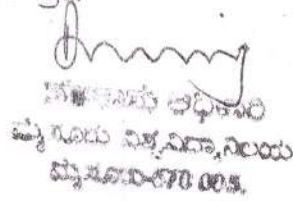 ಅಧಿಕಾರಿ
ಮೈಸೂರು ವಿಶ್ವವಿದ್ಯಾನಿಲಯ
ಮೈಸೂರು-570 005.